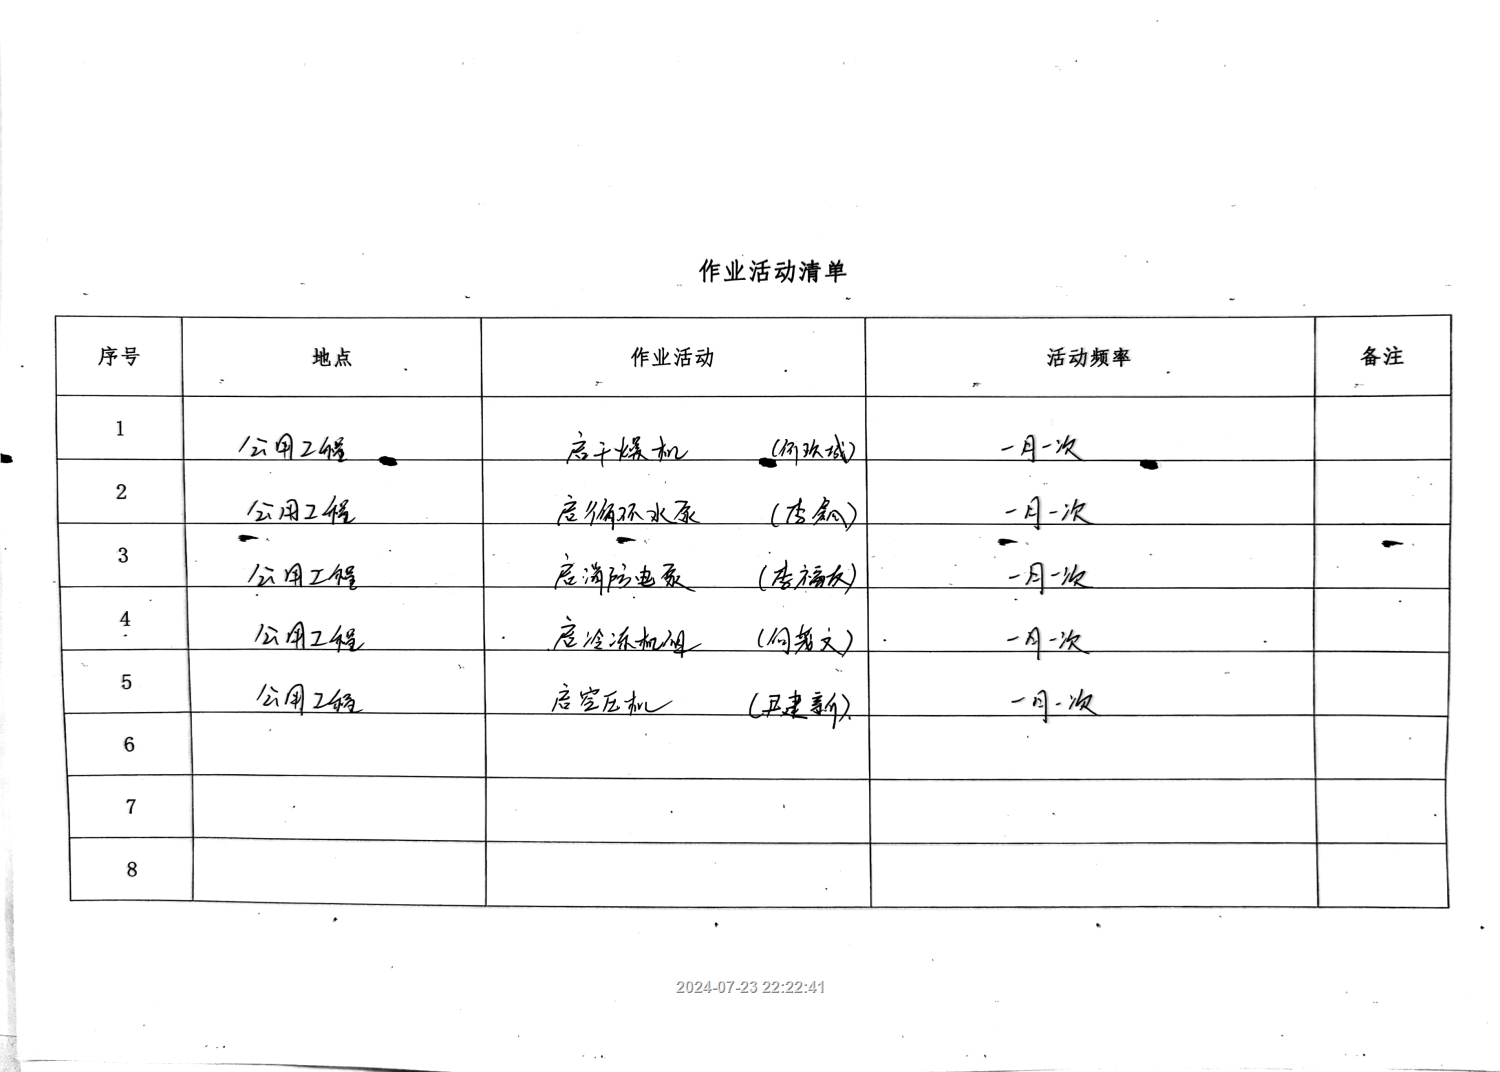 作业活动清单
序号 地点 作业活动 活动频率 备注
1 公用工程 启干燥机 一月一次
2 公用工程 启循环水泵 (李剑) 一月一次
3 公用工程 启消防电泵 (李福友) 一月一次
4 公用工程 启冷冻机组 一月一次
5 公用工程 启空压机 (尹建新) 一月一次
6
7
8
2024-07-23 22:22:41